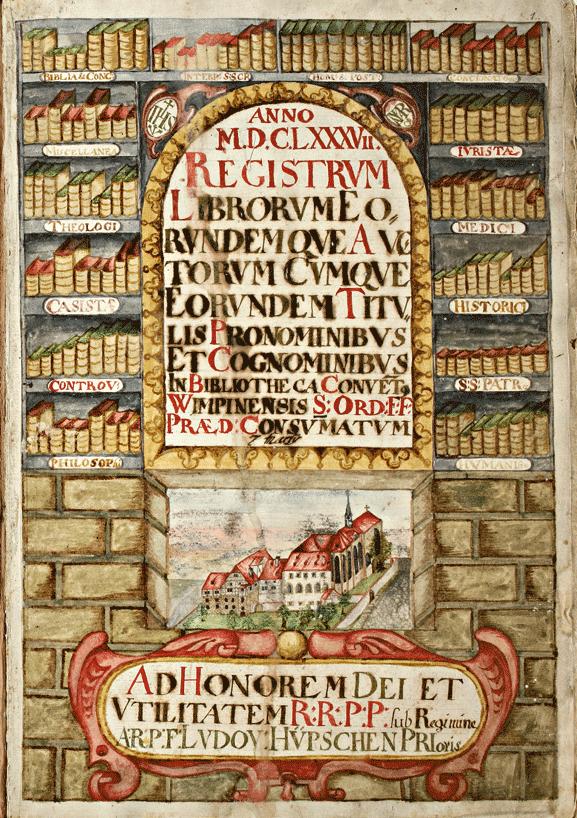 BIBLIA & CONC.
INTERP: S: SCR
HOM: & POST:
IHS
MR
MISCELLANEA
IURISTÆ
THEOLOGI
MEDICI
CASISTÆ
HISTORICI
CONTROV:
S:S: PATR:
PHILOSOP
HUMANI
ANNO
M.D.C.LXXXVII.
REGISTRVM
LIBRORVM EO„
RVNDEMQVE AVC
TORVM CVMQVE
EORVNDEM TITV„
LIS PRONOMINIBVS
ET COGNOMINIBVS
IN BIBLIOTHECA CONVĒT„
WIMPINENSIS S: ORD: FF
PRÆD: CONSVMATVM
AD HONOREM DEI ET
VTILITATEM R:R:P:P: sub Regimine
ARP: F: LVDOV: HÜPSCHEN PRIoris